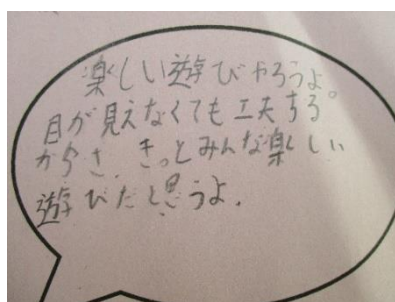 楽しい遊びやろうよ。
目が見えなくても工夫する
からさ、きっとみんな楽しい
遊びだと思うよ.